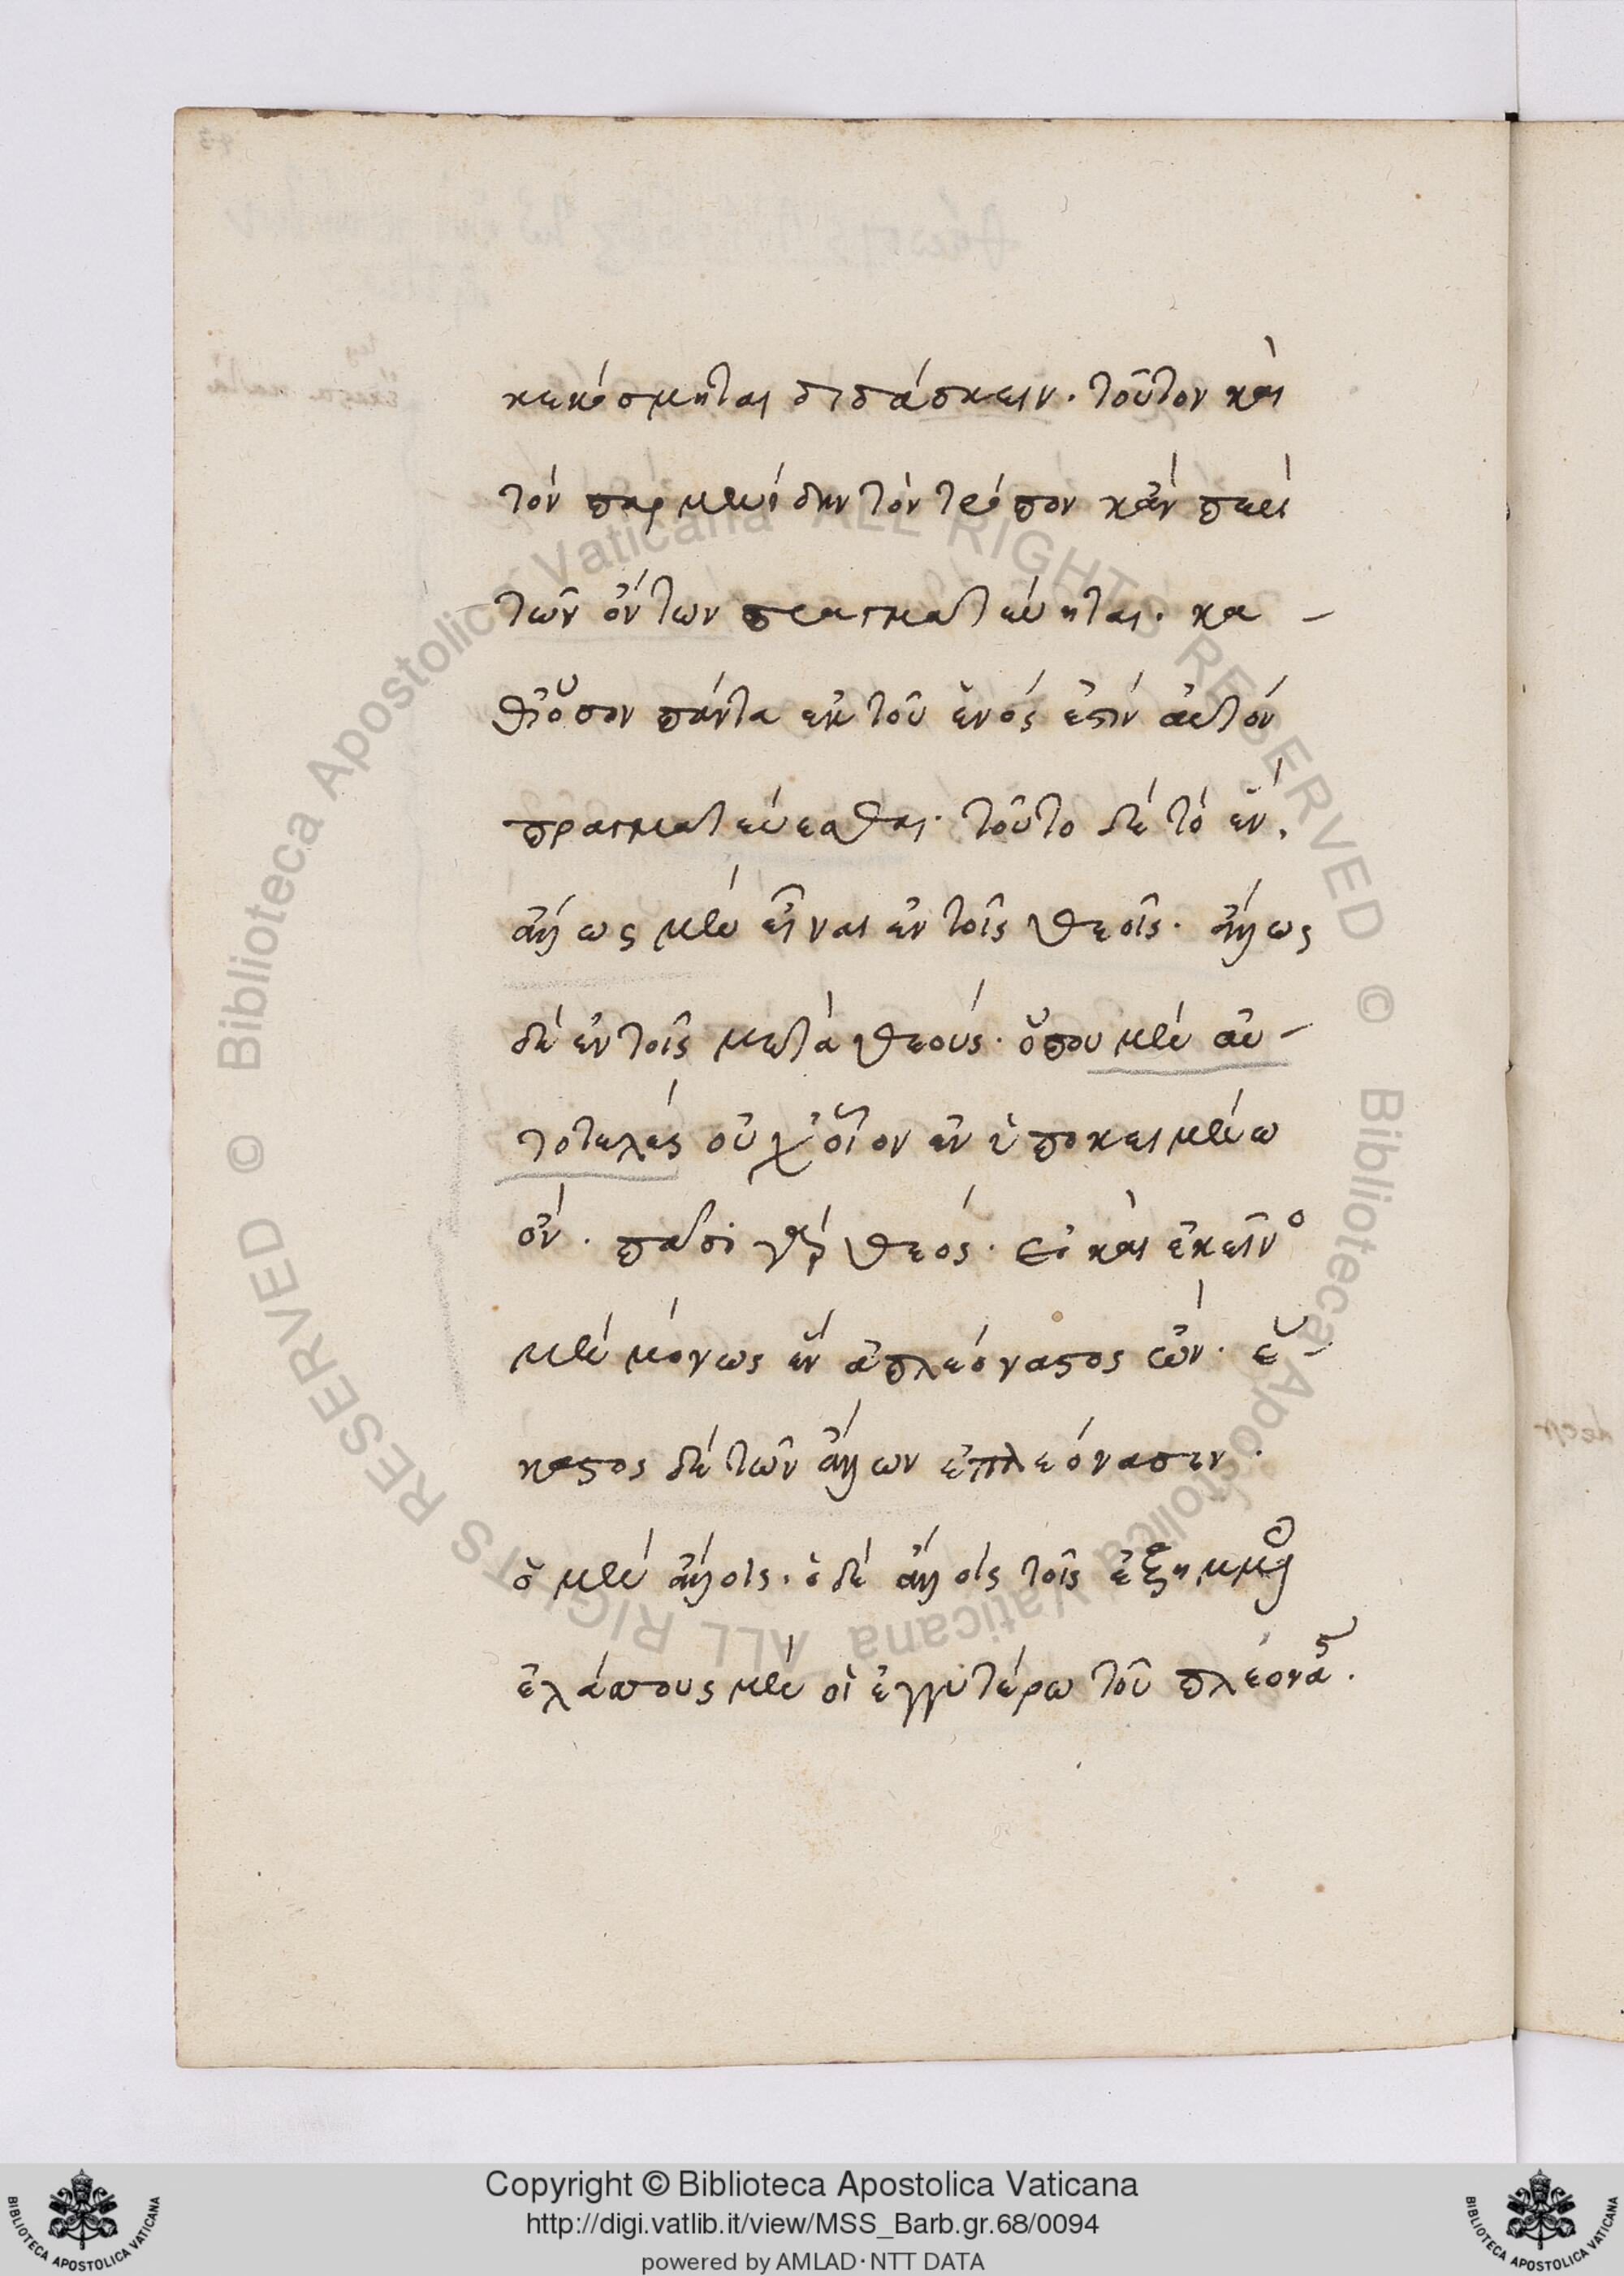 κεκόσμηται διδάσκειν. τοῦτον καὶ
τὸν παρμενίδην τὸν τρόπον κἂν περὶ
τῶν ὄντων πραγματεύηται. κα-
θ' ὅσον πάντα ἐκ τοῦ ἑνός ἐστιν αὐτὸν
πραγματεύεσθαι. τοῦτο δὲ τὸ ἕν,
ἄλλως μὲν εἶναι ἐν τοῖς θεοῖς. ἄλλως
δὲ ἐν τοῖς μετὰ θεούς. ὅπου μὲν αὐ-
τοτελές οὐχ' οἷον ἐν ὑποκειμένω
ὄν. πᾶσι γὰρ θεός. εἰ καὶ ἐκεῖνο
μὲν μόνως ἕν ἀπλεόναστος ὤν. ἕ-
καστος δὲ τῶν ἄλλων ἐπλεόνασεν.
ὁ μὲν ἄλλοις. ὁ δὲ ἄλλοις τοῖς ἐξημμένοις
ἐλάττους μὲν οἱ ἐγγυτέρω τοῦ πλεονασ.
Copyright © Biblioteca Apostolica Vaticana
http://digi.vatlib.it/view/MSS_Barb.gr.68/0094
powered by AMLAD·NTT DATA